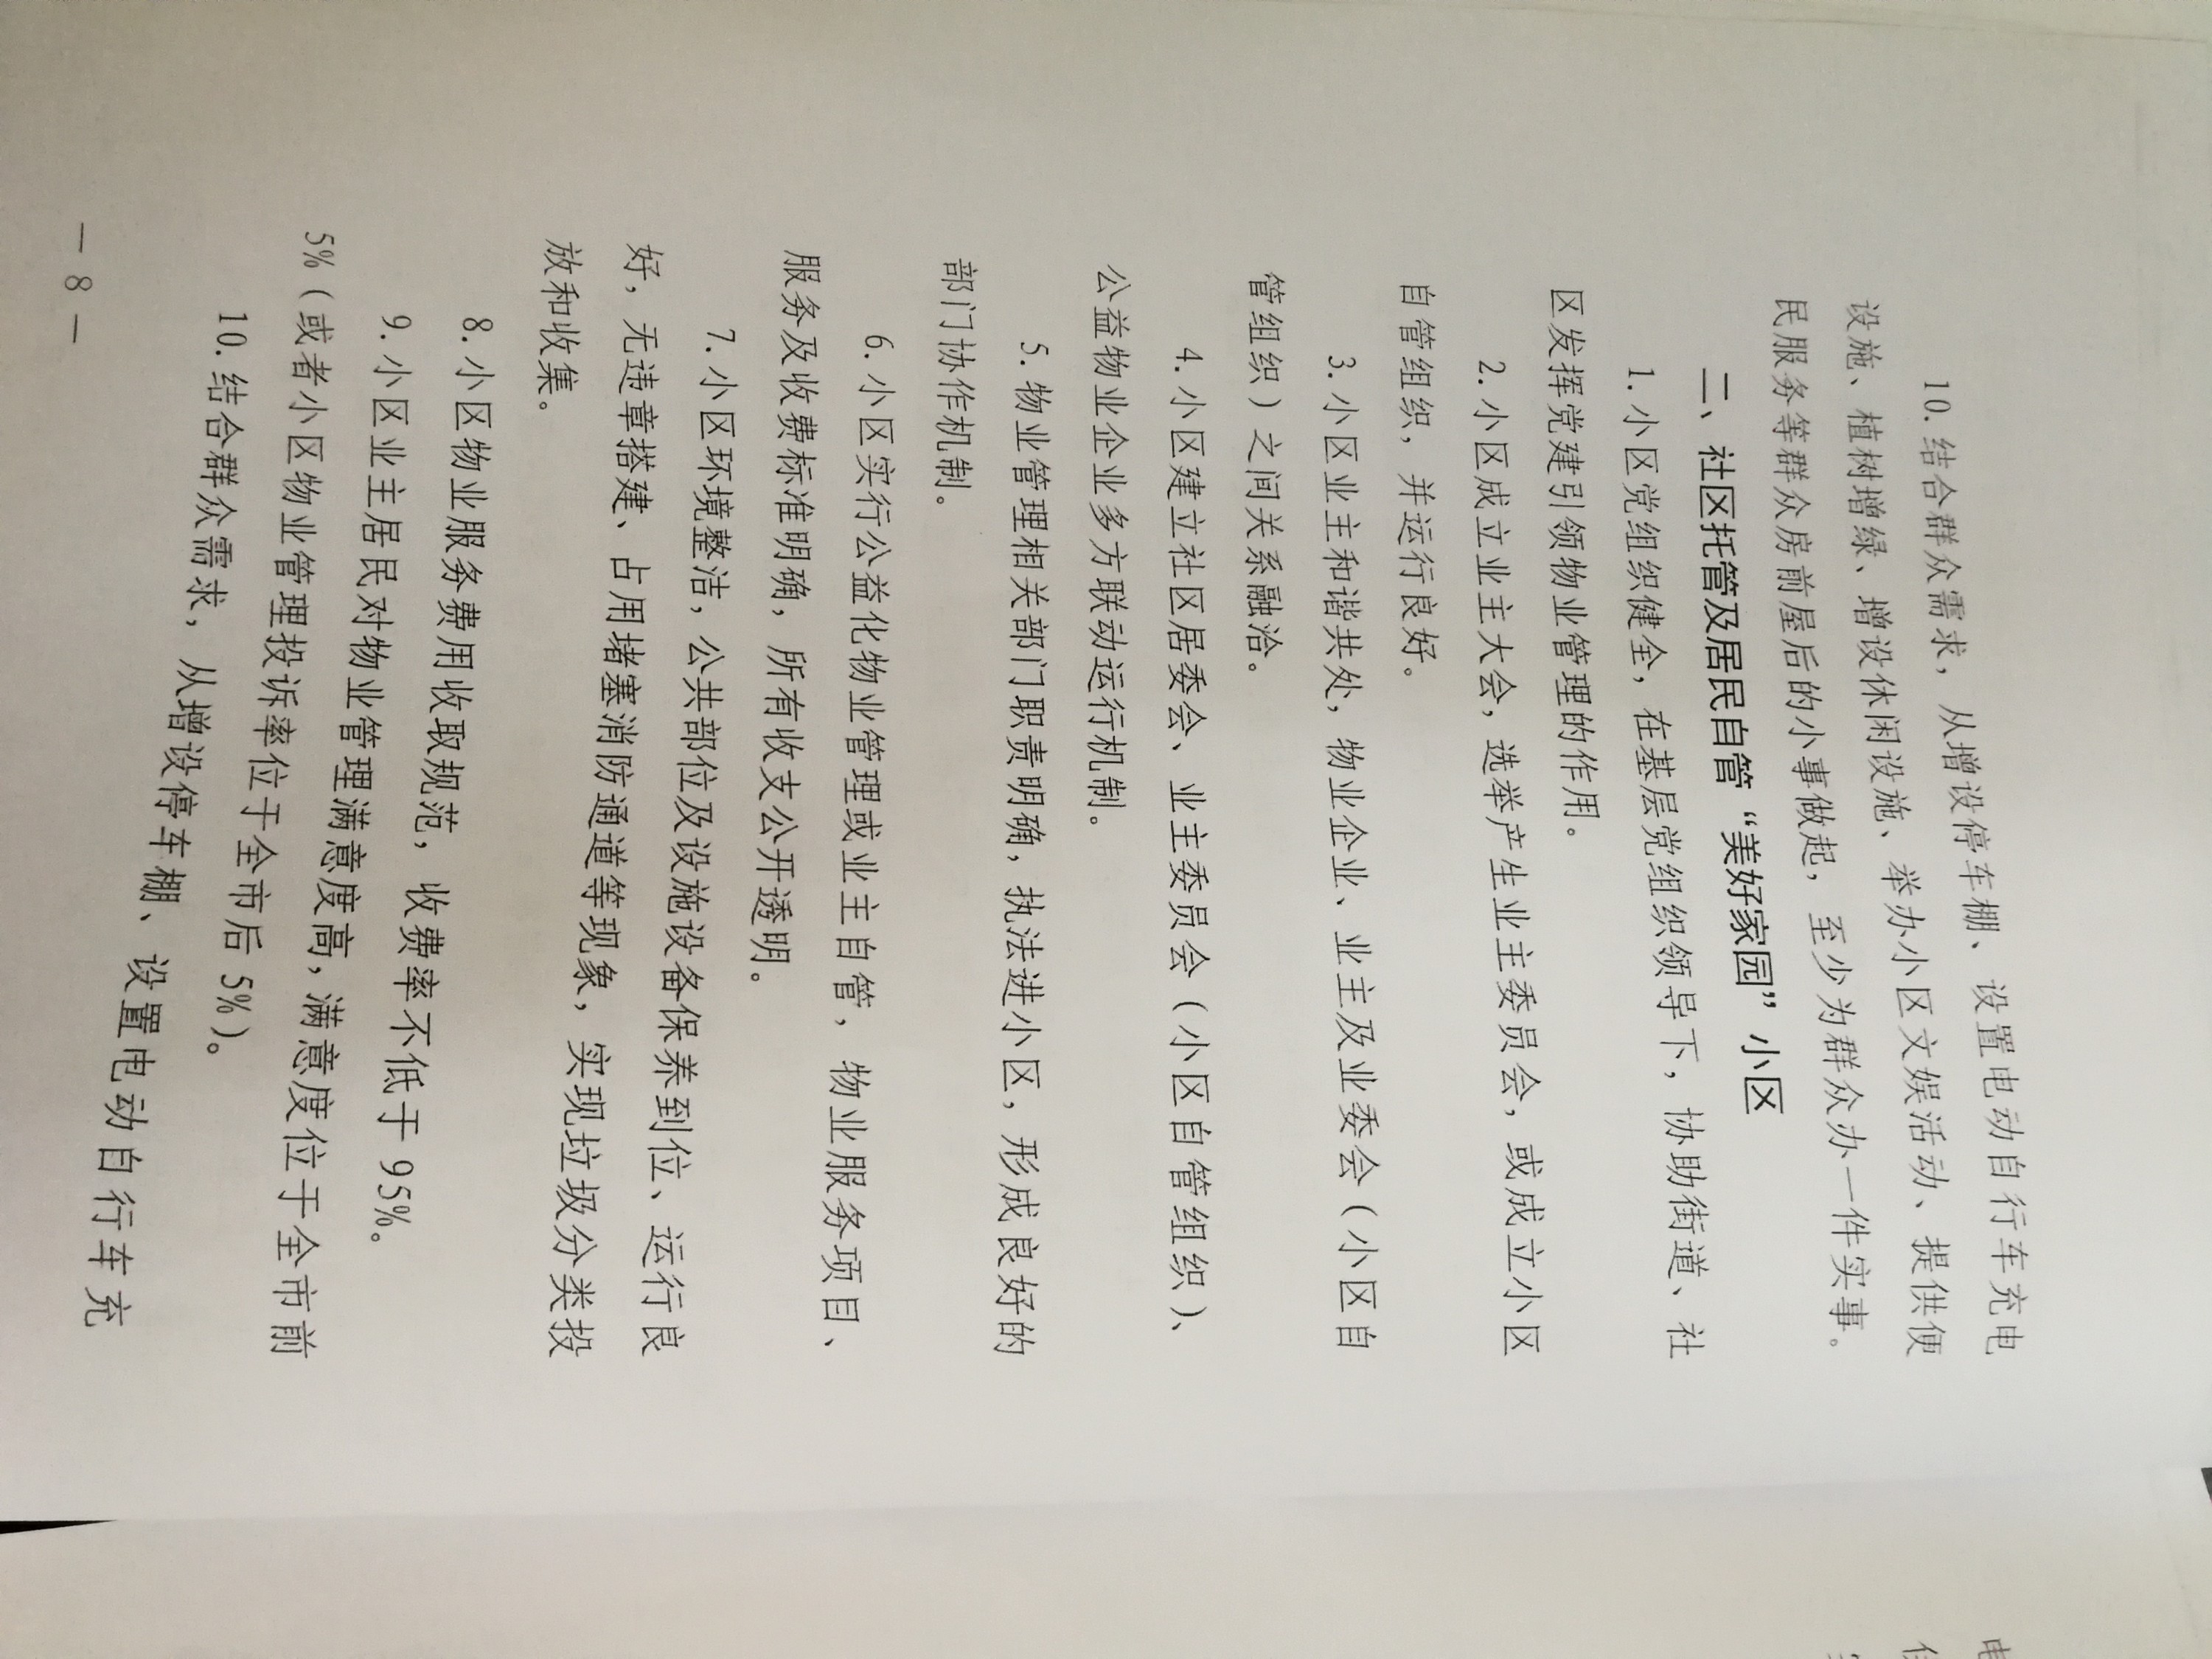 10. 结合群众需求，从增设停车棚、设置电动自行车充电
设施、植树增绿、增设休闲设施、举办小区文娱活动、提供便
民服务等群众房前屋后的小事做起，至少为群众办一件实事。
二、社区托管及居民自管“美好家园”小区
1. 小区党组织健全，在基层党组织领导下，协助街道、社
区发挥党建引领物业管理的作用。
2. 小区成立业主大会，选举产生业主委员会，或成立小区
自管组织，并运行良好。
3. 小区业主和谐共处，物业企业、业主及业委会（小区自
管组织）之间关系融洽。
4. 小区建立社区居委会、业主委员会（小区自管组织）、
公益物业企业多方联动运行机制。
5. 物业管理相关部门职责明确，执法进小区，形成良好的
部门协作机制。
6. 小区实行公益化物业管理或业主自管，物业服务项目、
服务及收费标准明确，所有收支公开透明。
7. 小区环境整洁，公共部位及设施设备保养到位、运行良
好，无违章搭建、占用堵塞消防通道等现象，实现垃圾分类投
放和收集。
8. 小区物业服务费用收取规范，收费率不低于 95%。
9. 小区业主居民对物业管理满意度高，满意度位于全市前
5%（或者小区物业管理投诉率位于全市后 5%）。
10. 结合群众需求，从增设停车棚、设置电动自行车充
— 8 —
电